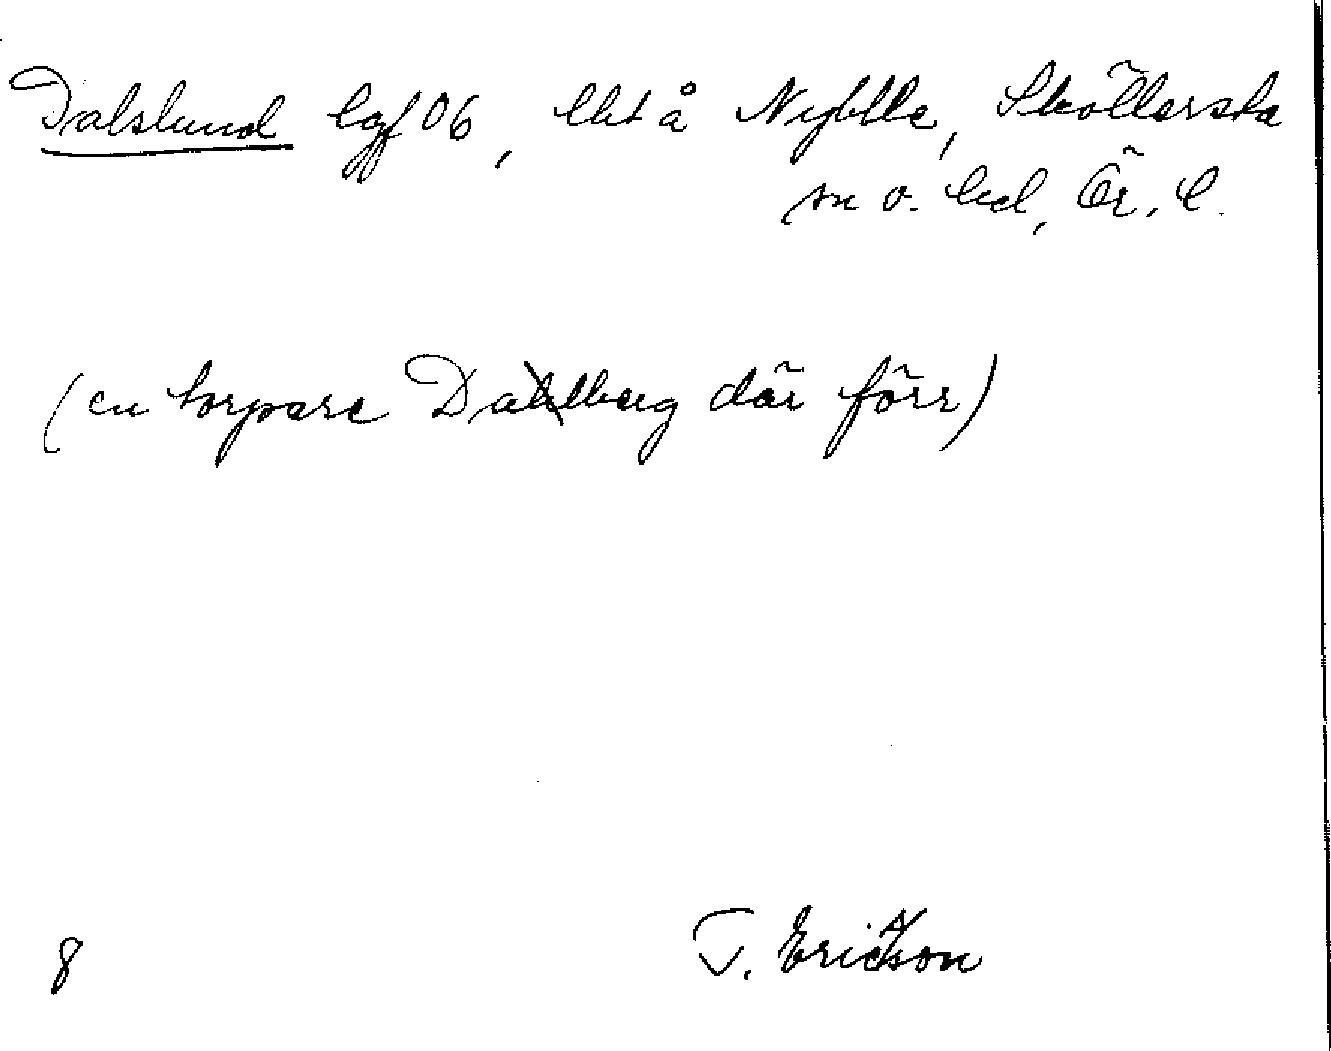 Dalslund lgf 06, lht å Nybble, Sköllersta
sn o. hd, Ör. l.
(en torpare Dahlberg där förr)
8 T. Ericsson